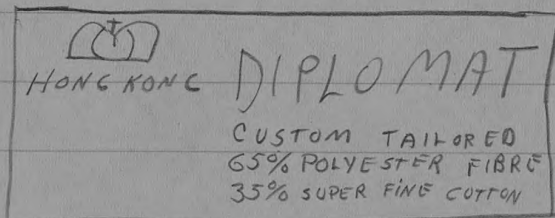 HONG KONG
DIPLOMAT
CUSTOM TAILORED
65% POLYESTER FIBRE
35% SUPER FINE COTTON